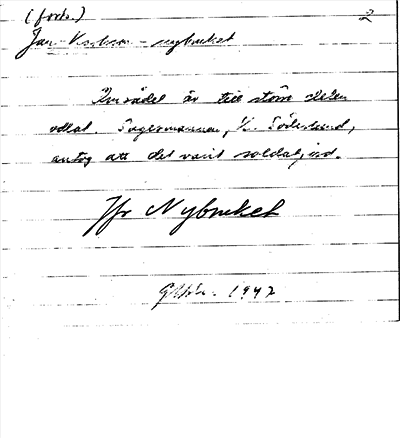 (forts.) 2
Jan- - nybruket
Området är till större delen
odlat. Sagesmannen, K. Söderlund,
antog att det varit soldat, ord.
Jfr Nybruket
1942